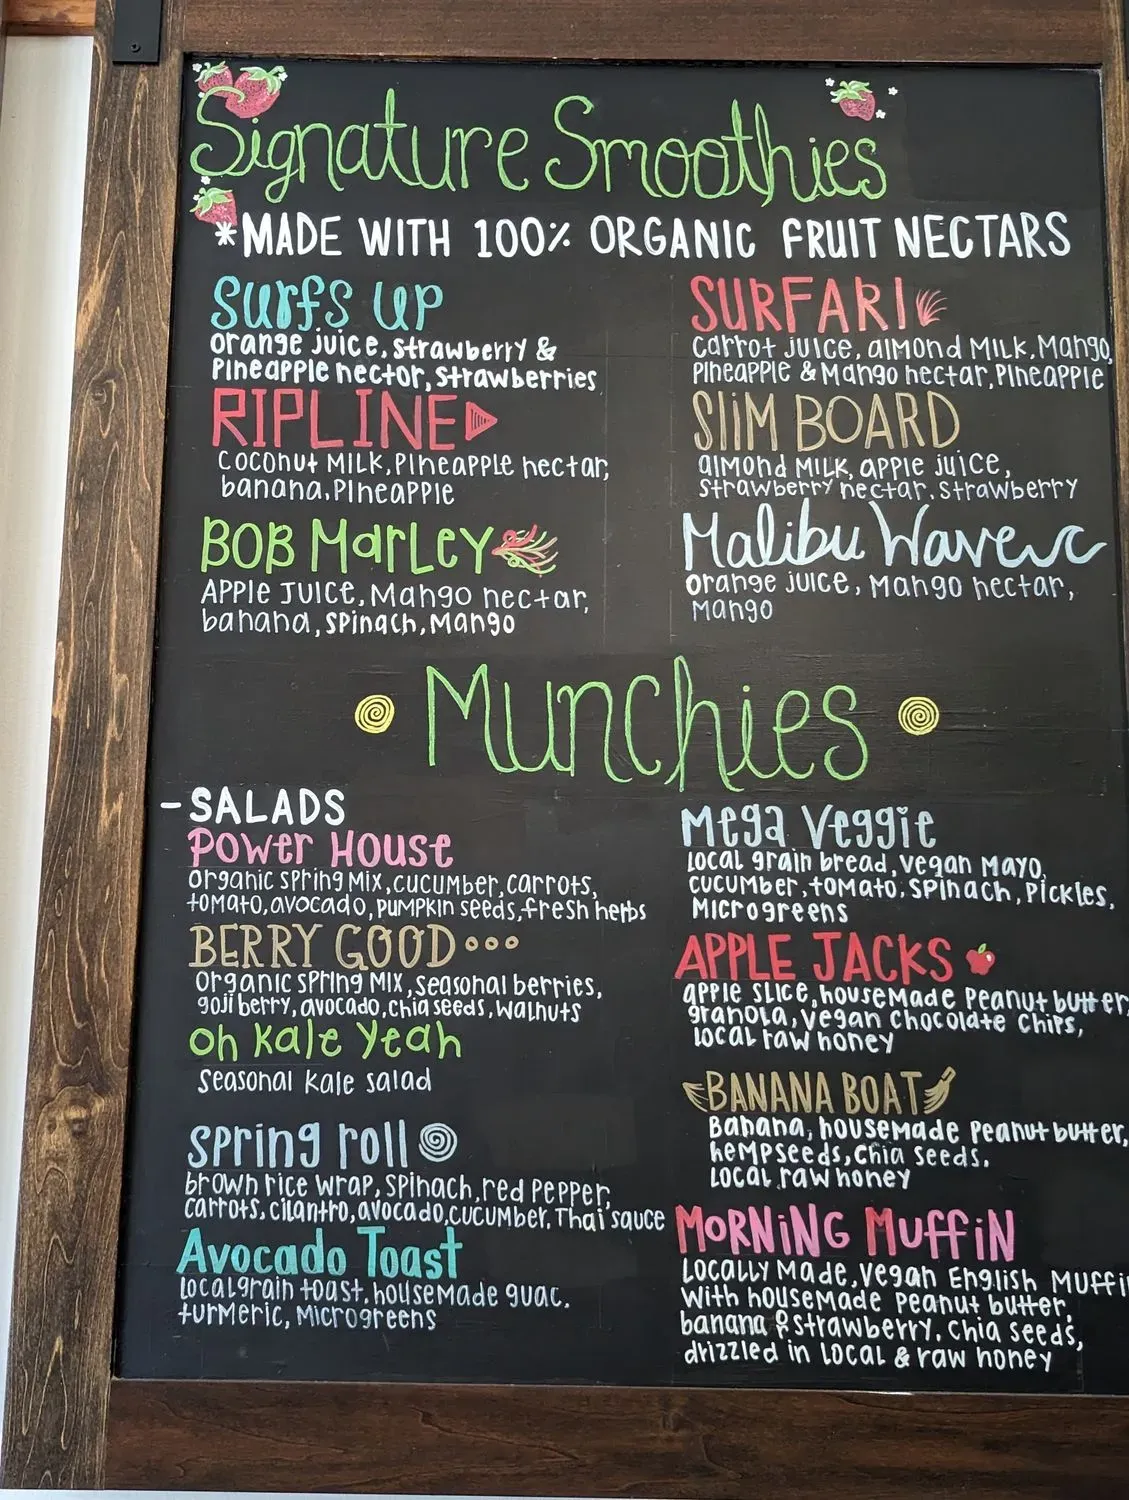 Signature Smoothies
*MADE WITH 100% ORGANIC FRUIT NECTARS
SURFS UP
orange juice, strawberry &
Pineapple nector, strawberries
RIPLINE
Coconut MILK, Pineapple nectar,
banana, Pineapple
BOB MARLEY
APPLE JUICE, Mango nectar,
banana, spinach, Mango
SURFARI
Carrot juice, almond MILK, Mango,
Pineapple & Mango nectar, Pineapple
SLIM BOARD
almond MILK, apple juice,
strawberry nectar, strawberry
Malibu Wave
orange juice, Mango nectar,
Mango
Munchies
-SALADS
Power House
organic spring Mix, cucumber, carrots,
tomato, avocado, pumpkin seeds, fresh herbs
BERRY GOOD...
organic spring MIX, seasonal berries,
goji berry, avocado, chia seeds, walnuts
Oh Kale Yeah
seasonal kale salad
Spring roll
brown rice wrap, spinach, red pepper,
carrots, cilantro, avocado, cucumber, Thai sauce
Avocado Toast
local grain toast, housemade guac,
turmeric, Microgreens
Mega Veggie
local grain bread, vegan Mayo,
cucumber, tomato, spinach, pickles,
Microgreens
APPLE JACKS
apple slice, housemade peanut butter,
granola, vegan chocolate chips,
local raw honey
BANANA BOAT
Banana, housemade peanut butter,
hempseeds, chia seeds,
local raw honey
MORNING MUFFIN
Locally Made, vegan English Muffi
with housemade peanut butter,
banana & strawberry, chia seeds,
drizzled in local & raw honey